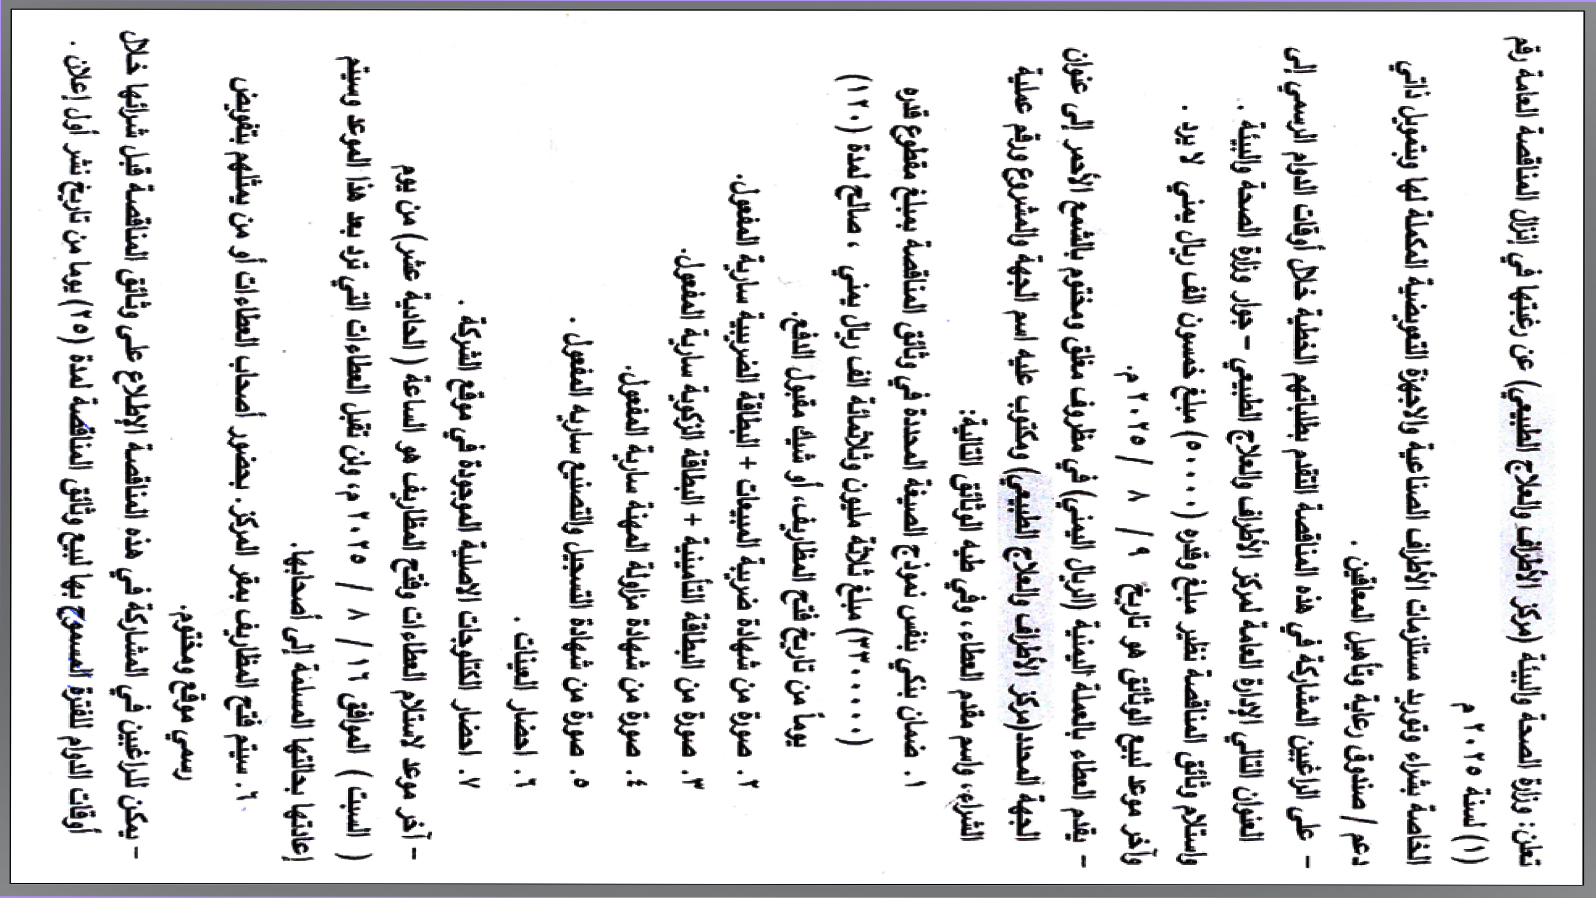 تعلن: وزارة الصحة والبيئة (مركز الأطراف والعلاج الطبيعي) عن رغبتها في إنزال المناقصة العامة رقم
(١) لسنة ٢٠٢٥ م
الخاصة بشراء وتوريد مستلزمات الأطراف الصناعية والاجهزة التعويضية المكملة لها وبتمويل ذاتي
دعم / صندوق رعاية وتأهيل المعاقين .
– على الراغبين المشاركة في هذه المناقصة التقدم بطلباتهم الخطية خلال أوقات الدوام الرسمي إلى
العنوان التالي الإدارة العامة لمركز الأطراف والعلاج الطبيعي – جوار وزارة الصحة والبيئة . .
واستلام وثائق المناقصة نظير مبلغ وقدره (٥٠٠٠٠) مبلغ خمسون الف ريال يمني لا يرد .
وآخر موعد لبيع الوثائق هو تاريخ ٩ / ٨ / ٢٠٢٥ م.
– يقدم العطاء بالعملة اليمنية (الريال اليمني) في مظروف مغلق ومختوم بالشمع الأحمر إلى عنوان
الجهة المحدد(مركز الأطراف والعلاج الطبيعي) ومكتوب عليه اسم الجهة والمشروع ورقم عملية
الشراء، واسم مقدم العطاء، وفي طيه الوثائق التالية:
١. ضمان بنكي بنفس نموذج الصيغة المحددة في وثائق المناقصة بمبلغ مقطوع قدره
(٣٣٠٠٠٠٠) مبلغ ثلاثة مليون وثلاثمائة الف ريال يمني ، صالح لمدة (١٢٠)
يوماً من تاريخ فتح المظاريف، أو شيك مقبول الدفع.
٢. صورة من شهادة ضريبة المبيعات + البطاقة الضريبية سارية المفعول.
٣. صورة من البطاقة التأمينية + البطاقة الزكوية سارية المفعول.
٤. صورة من شهادة مزاولة المهنة سارية المفعول.
٥. صورة من شهادة التسجيل والتصنيع ساريه المفعول .
٦. احضار العينات .
٧. احضار الكتلوجات الاصلية الموجودة في موقع الشركة .
– آخر موعد لاستلام العطاءات وفتح المظاريف هو الساعة ( الحادية عشر) من يوم
( السبت ) الموافق ١٦ / ٨ / ٢٠٢٥ م، ولن تقبل العطاءات التي ترد بعد هذا الموعد وسيتم
إعادتها بحالتها المسلمة إلى أصحابها.
٦. سيتم فتح المظاريف بمقر المركز . بحضور أصحاب العطاءات أو من يمثلهم بتفويض
رسمي موقع ومختوم.
– يمكن للراغبين في المشاركة في هذه المناقصة الإطلاع على وثائق المناقصة قبل شرائها خلال
أوقات الدوام للفترة المسموح بها لبيع وثائق المناقصة لمدة (٢٥) يوما من تاريخ نشر أول إعلان .